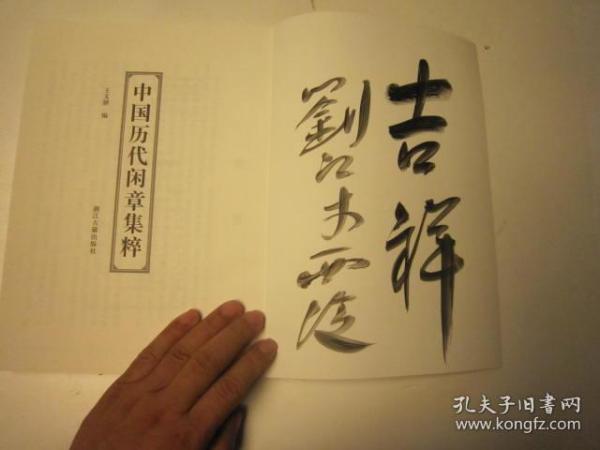 吉祥
劉江 西泠
中国历代闲章集粹
王义骅 编
浙江古籍出版社
孔夫子旧书网
www.kongfz.com